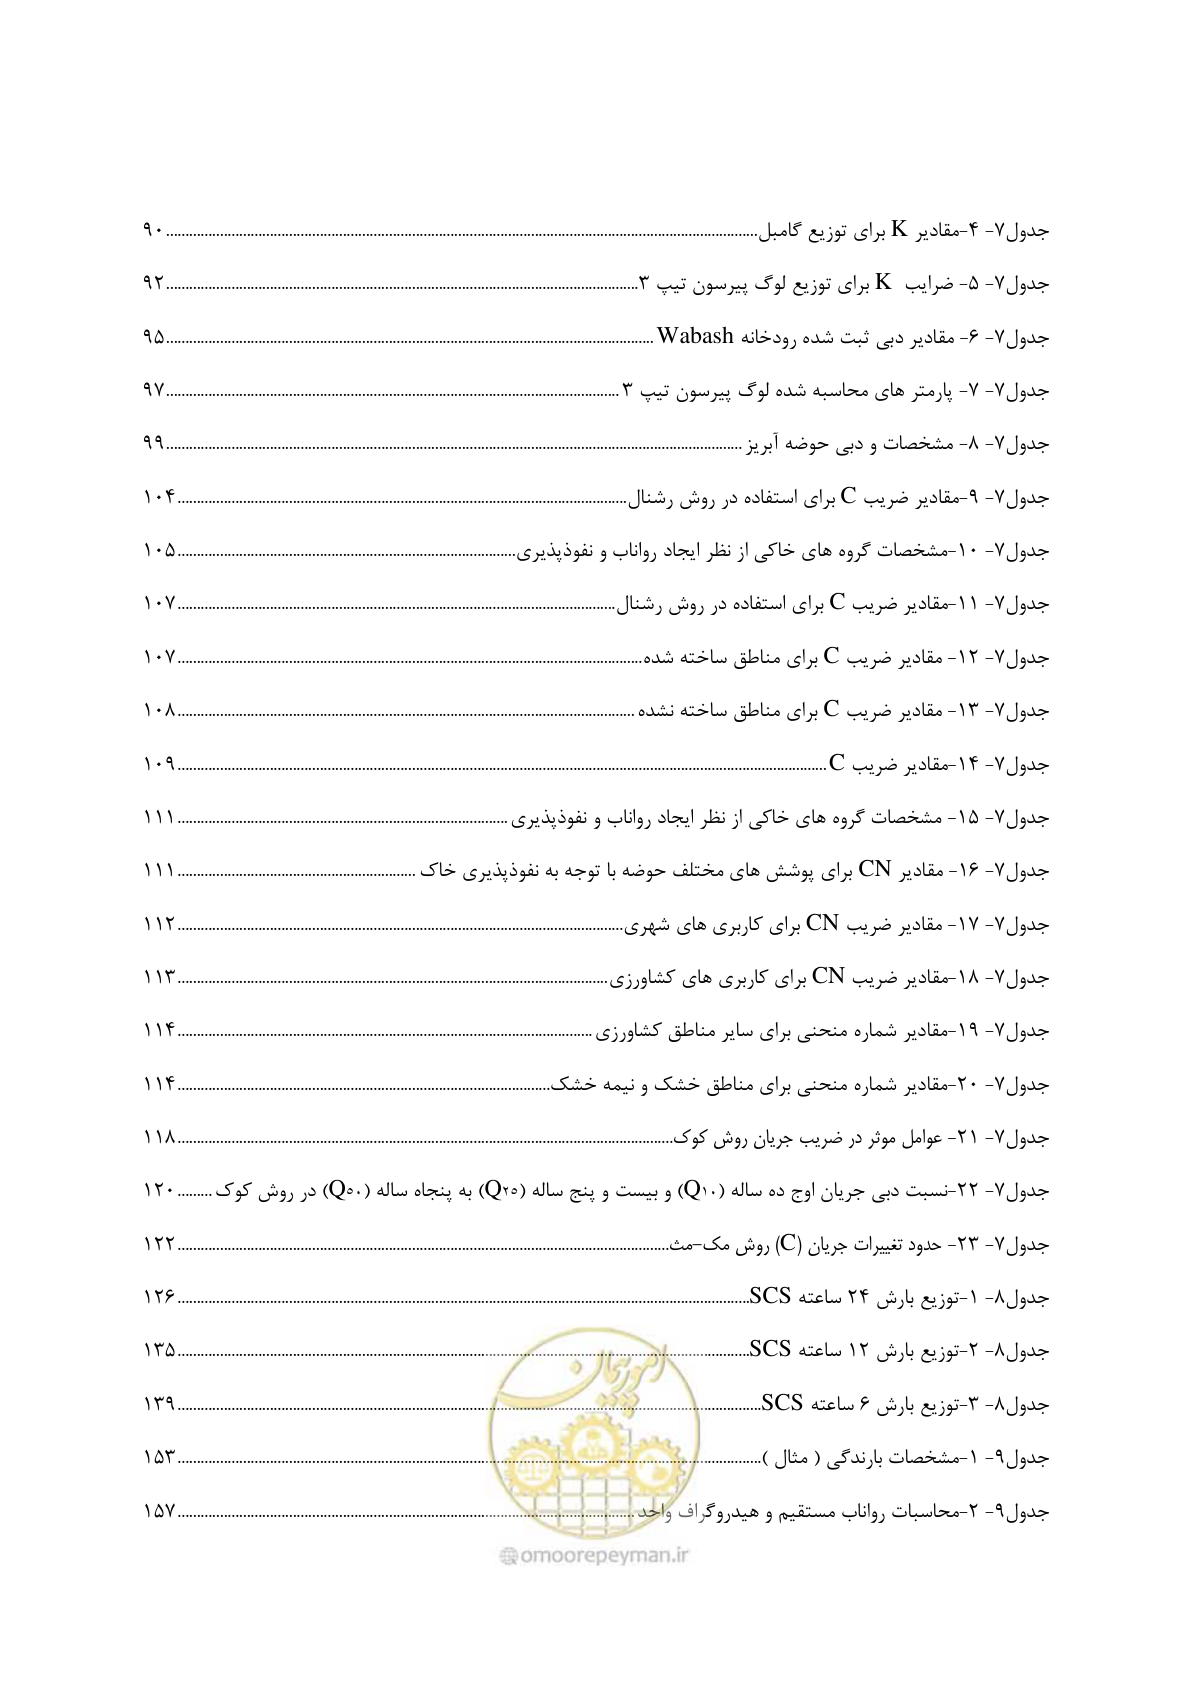 جدول۷- ۴-مقادیر K برای توزیع گامبل..........۹۰
جدول۷- ۵- ضرایب K برای توزیع لوگ پیرسون تیپ ۳..........۹۲
جدول۷- ۶- مقادیر دبی ثبت شده رودخانه Wabash..........۹۵
جدول۷- ۷- پارمتر های محاسبه شده لوگ پیرسون تیپ ۳..........۹۷
جدول۷- ۸- مشخصات و دبی حوضه آبریز..........۹۹
جدول۷- ۹-مقادیر ضریب C برای استفاده در روش رشنال..........۱۰۴
جدول۷- ۱۰-مشخصات گروه های خاکی از نظر ایجاد رواناب و نفوذپذیری..........۱۰۵
جدول۷- ۱۱-مقادیر ضریب C برای استفاده در روش رشنال..........۱۰۷
جدول۷- ۱۲- مقادیر ضریب C برای مناطق ساخته شده..........۱۰۷
جدول۷- ۱۳- مقادیر ضریب C برای مناطق ساخته نشده..........۱۰۸
جدول۷- ۱۴-مقادیر ضریب C..........۱۰۹
جدول۷- ۱۵- مشخصات گروه های خاکی از نظر ایجاد رواناب و نفوذپذیری..........۱۱۱
جدول۷- ۱۶- مقادیر CN برای پوشش های مختلف حوضه با توجه به نفوذپذیری خاک..........۱۱۱
جدول۷- ۱۷- مقادیر ضریب CN برای کاربری های شهری..........۱۱۲
جدول۷- ۱۸-مقادیر ضریب CN برای کاربری های کشاورزی..........۱۱۳
جدول۷- ۱۹-مقادیر شماره منحنی برای سایر مناطق کشاورزی..........۱۱۴
جدول۷- ۲۰-مقادیر شماره منحنی برای مناطق خشک و نیمه خشک..........۱۱۴
جدول۷- ۲۱- عوامل موثر در ضریب جریان روش کوک..........۱۱۸
جدول۷- ۲۲-نسبت دبی جریان اوج ده ساله (Q۱۰) و بیست و پنج ساله (Q۲۵) به پنجاه ساله (Q۵۰) در روش کوک.........۱۲۰
جدول۷- ۲۳- حدود تغییرات جریان (C) روش مک-مث..........۱۲۲
جدول۸- ۱-توزیع بارش ۲۴ ساعته SCS..........۱۲۶
جدول۸- ۲-توزیع بارش ۱۲ ساعته SCS..........۱۳۵
جدول۸- ۳-توزیع بارش ۶ ساعته SCS..........۱۳۹
جدول۹- ۱-مشخصات بارندگی ( مثال )..........۱۵۳
جدول۹- ۲-محاسبات رواناب مستقیم و هیدروگراف واحد..........۱۵۷
امور پیمان
@omoorepeyman.ir